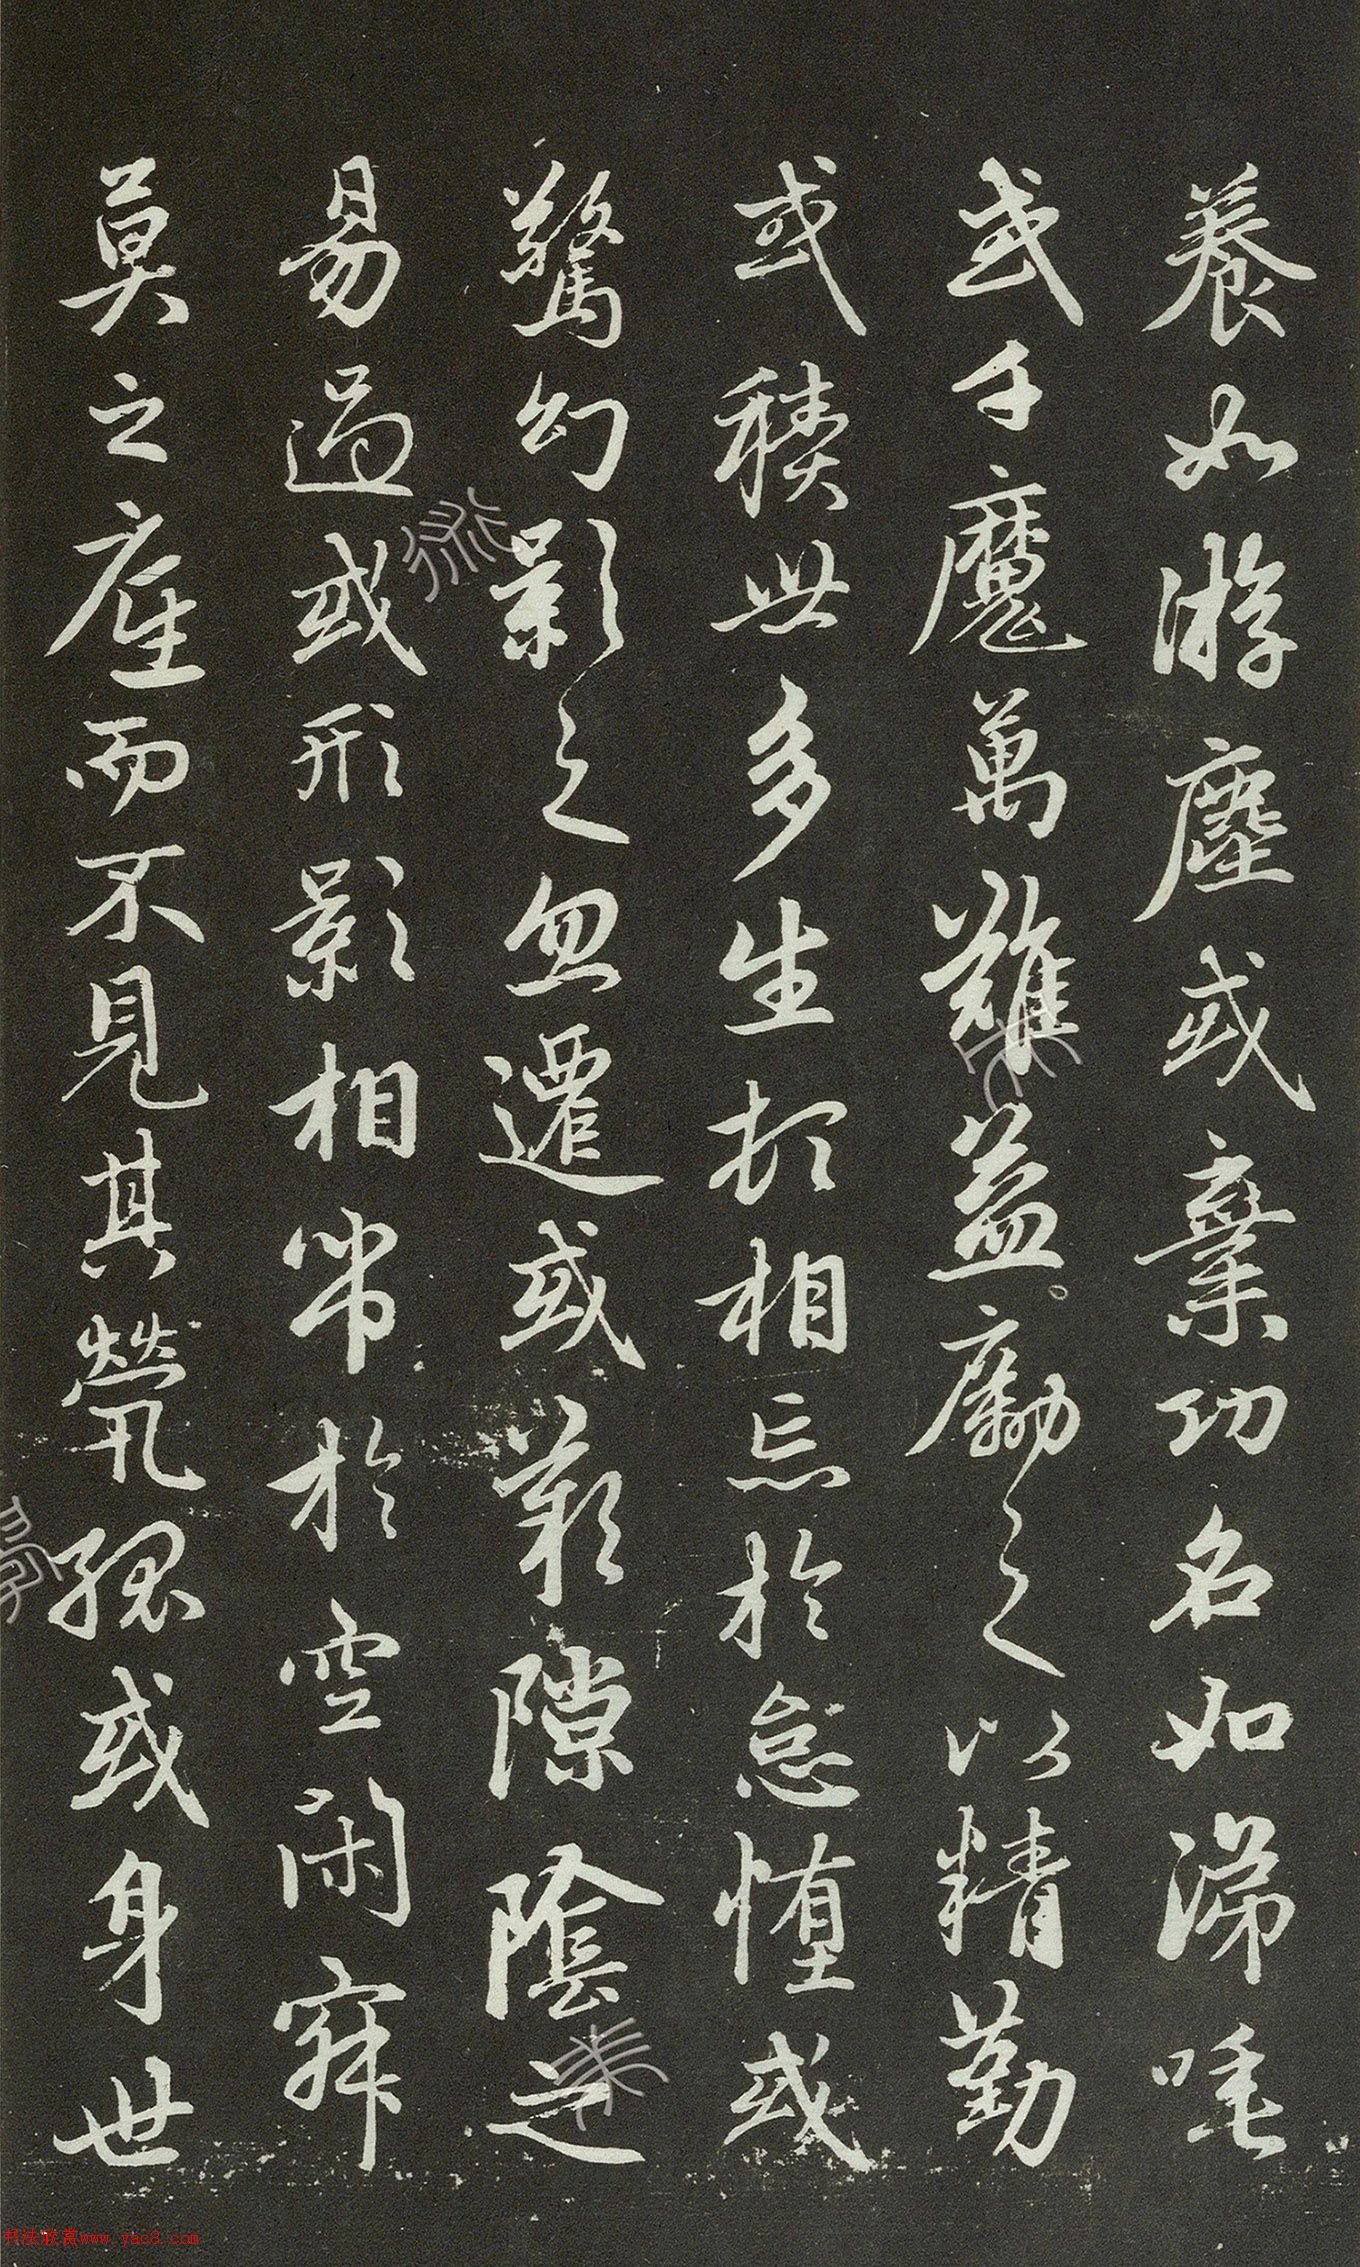 養如游塵或棄功名如涕唾
或千魔萬難益勵之以精勤
或積世多生頓相忘於怠惰或
驚幻影之忽遷或歎隙陰之
易過或形影相弔於空閑寂
莫之座而不見其煢孤或身世
书法欣赏www.yac8.com